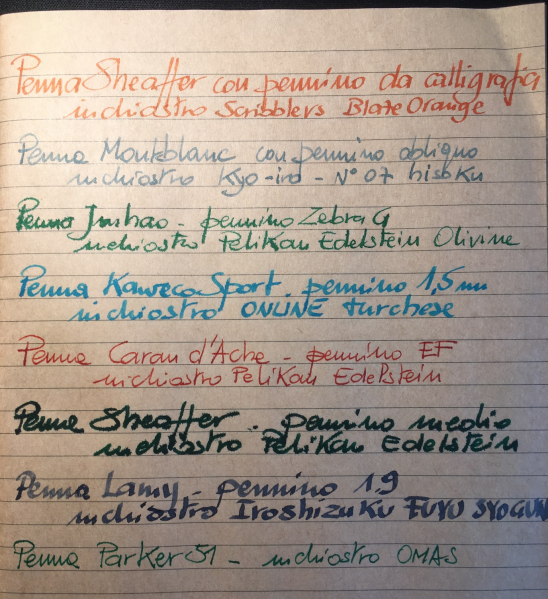 Penna Sheaffer con pennino da calligrafia
inchiostro Scribblers Blaze Orange
Penna Montblanc con pennino obliquo
inchiostro Kyo-iro - N° 07 hisoku
Penna Jinhao - pennino Zebra G
inchiostro Pelikan Edelstein Olivine
Penna Kaweco Sport - pennino 1,5 mm
inchiostro ONLINE turchese
Penna Caran d'Ache - pennino EF
inchiostro Pelikan Edelstein
Penna Sheaffer - pennino medio
inchiostro Pelikan Edelstein
Penna Lamy - pennino 1.9
inchiostro Iroshizuku FUYU SYOGUN
Penna Parker 51 - inchiostro OMAS